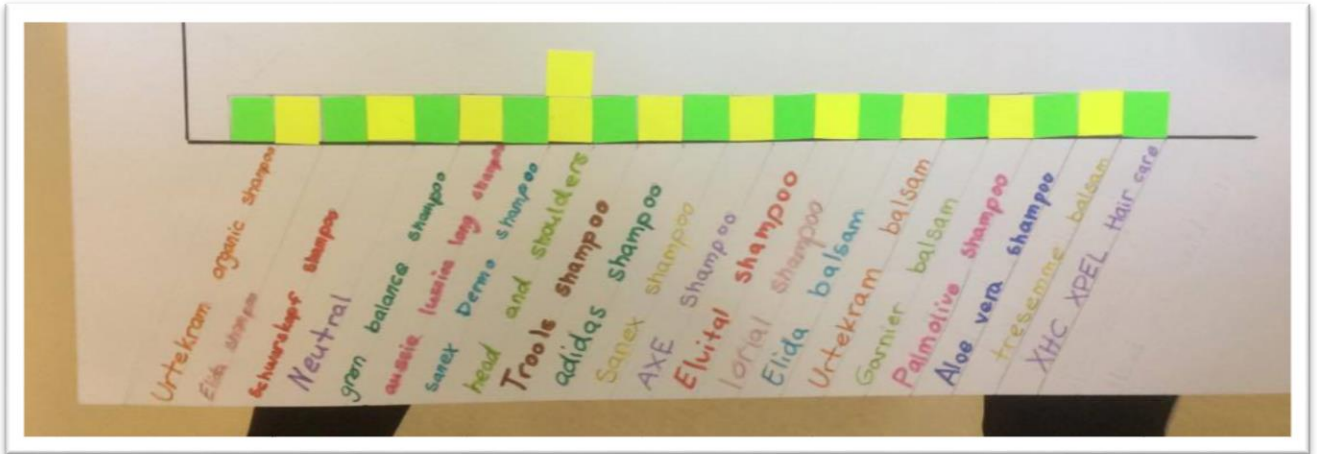 Urtekram organic shampoo
Elida shampoo
Schwarskopf shampoo
Neutral
gren balance shampoo
aussie luscios long shampoo
Sanex Dermo shampoo
head and shoulders
Trools shampoo
adidas shampoo
Sanex shampoo
AXE Shampoo
Elvital shampoo
lorial shampoo
Elida balsam
Urtekram balsam
Garnier balsam
Palmolive shampoo
Aloe vera shampoo
tresemme balsam
XHC XPEL Hair care